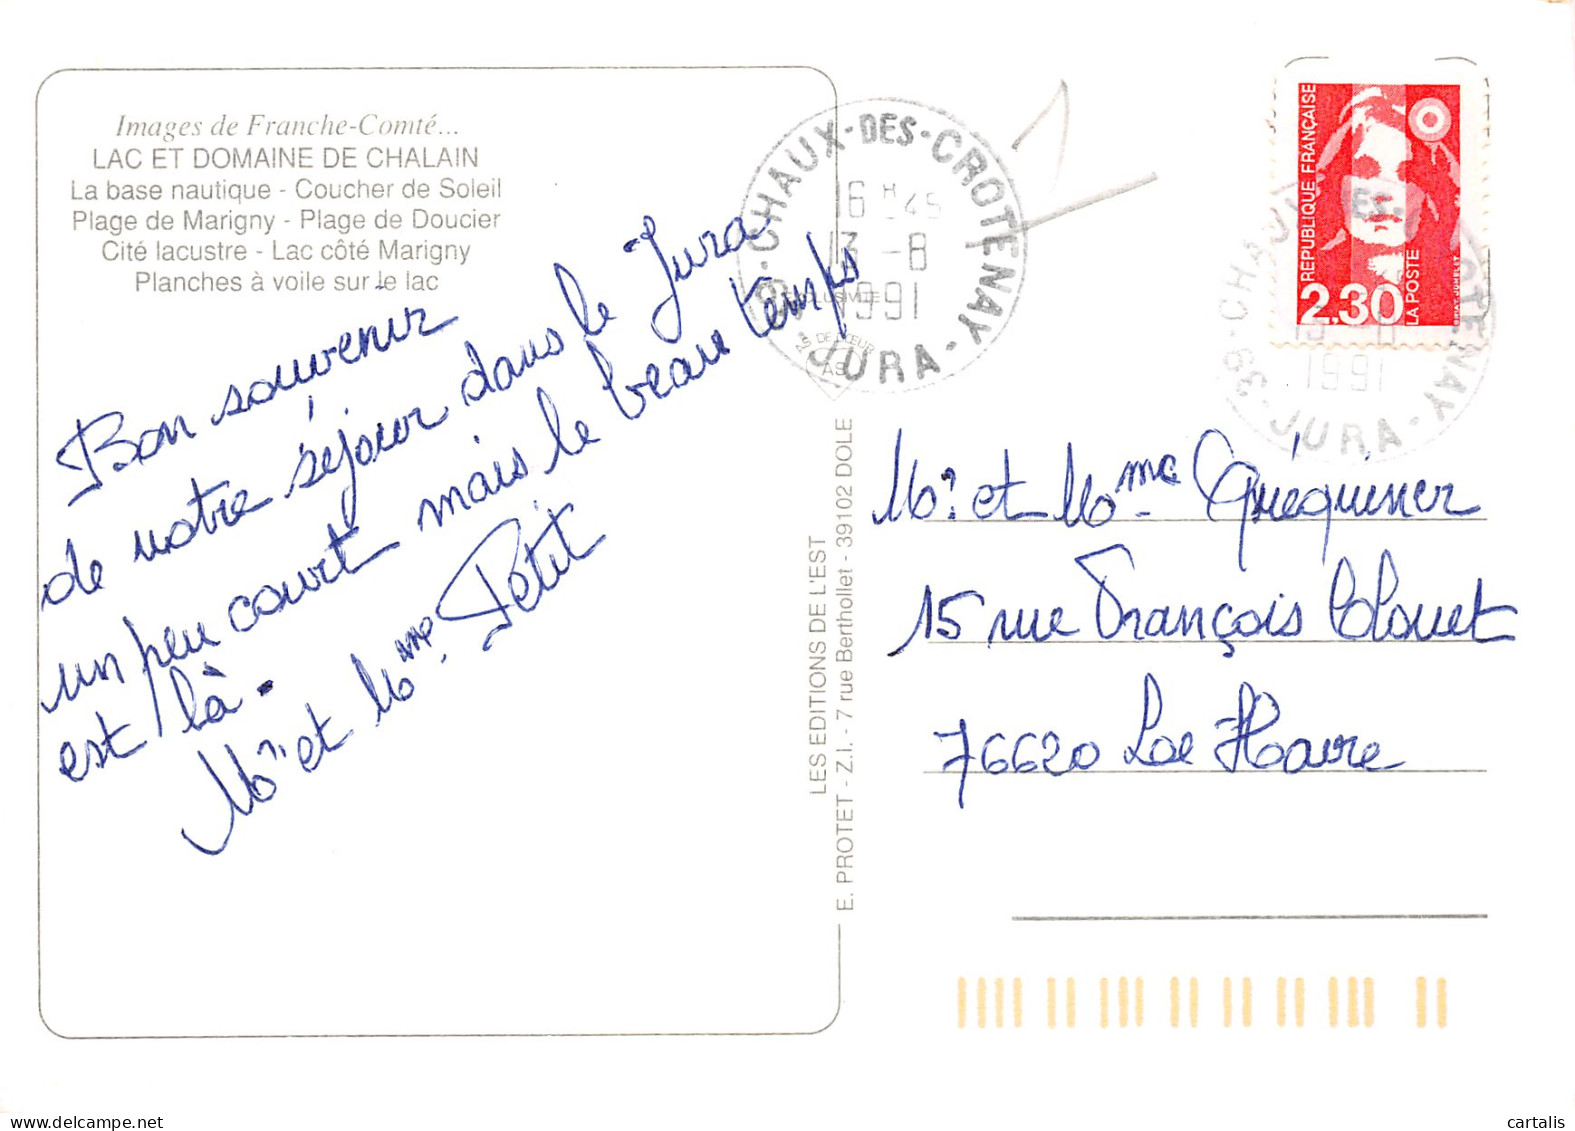 Images de Franche-Comté...
LAC ET DOMAINE DE CHALAIN
La base nautique - Coucher de Soleil
Plage de Marigny - Plage de Doucier
Cité lacustre - Lac côté Marigny
Planches à voile sur le lac
Bon souvenir
de notre séjour dans le Jura
un peu court mais le beau temps
est là.
Mr. et Mme. Petit
LES EDITIONS DE L'EST
E. PROTET - Z.I. - 7 rue Berthollet - 39102 DOLE
39 - CHAUX-DES-CROTENAY - JURA
16 H 45
13 - 8
1991
RÉPUBLIQUE FRANÇAISE
2,30
LA POSTE
39 - JURA -
1991
Mr. et Mme. Quéquiner
15 rue François Clouet
76620 Le Havre
cartalis